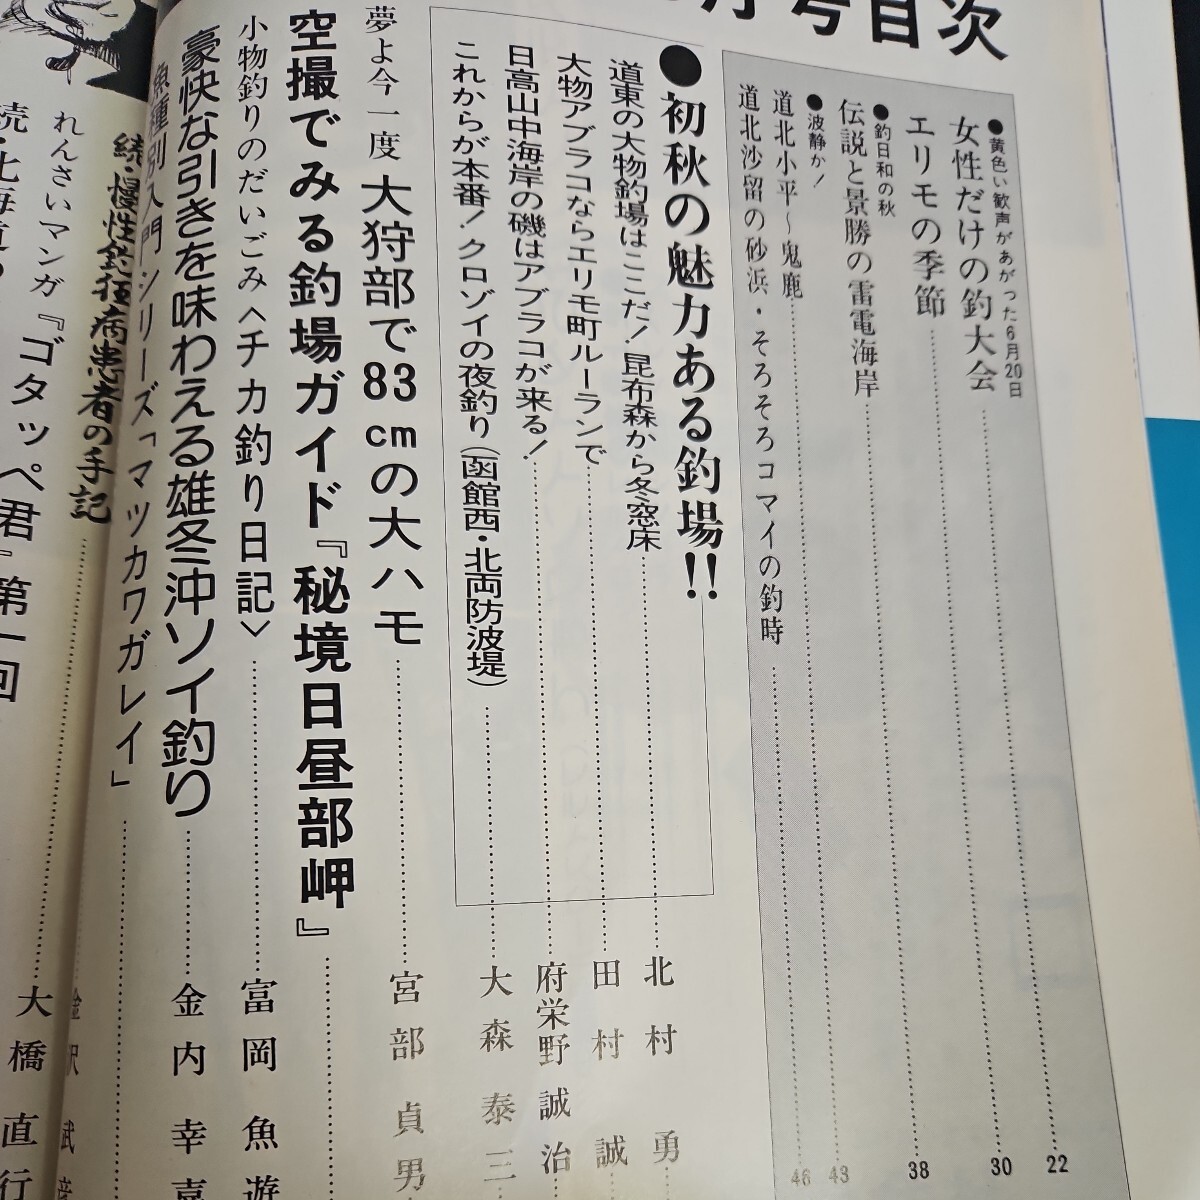 月号目次
●黄色い歓声があがった6月20日
女性だけの釣大会
22
エリモの季節
30
●釣日和の秋
伝説と景勝の雷電海岸
38
●波静か!
道北小平~鬼鹿
43
道北沙留の砂浜・そろそろコマイの釣時
46
●初秋の魅力ある釣場!!
道東の大物釣場はここだ!昆布森から冬窓床
北村 勇
大物アブラコならエリモ町ルーランで
田村 誠
日高山中海岸の磯はアブラコが来る!
府栄野誠治
これからが本番!クロゾイの夜釣り(函館西・北両防波堤)
大森泰三
夢よ今一度 大狩部で83cmの大ハモ
宮部貞男
空撮でみる釣場ガイド『秘境日昼部岬』
小物釣りのだいごみ<チカ釣り日記>
富岡魚遊
豪快な引きを味わえる雄冬沖ソイ釣り
金内幸
魚種別入門シリーズ「マツカワガレイ」
続・慢性釣狂病患者の手記
金沢武
れんさいマンガ『ゴタッペ君』第一回
大橋直行
続・北海道